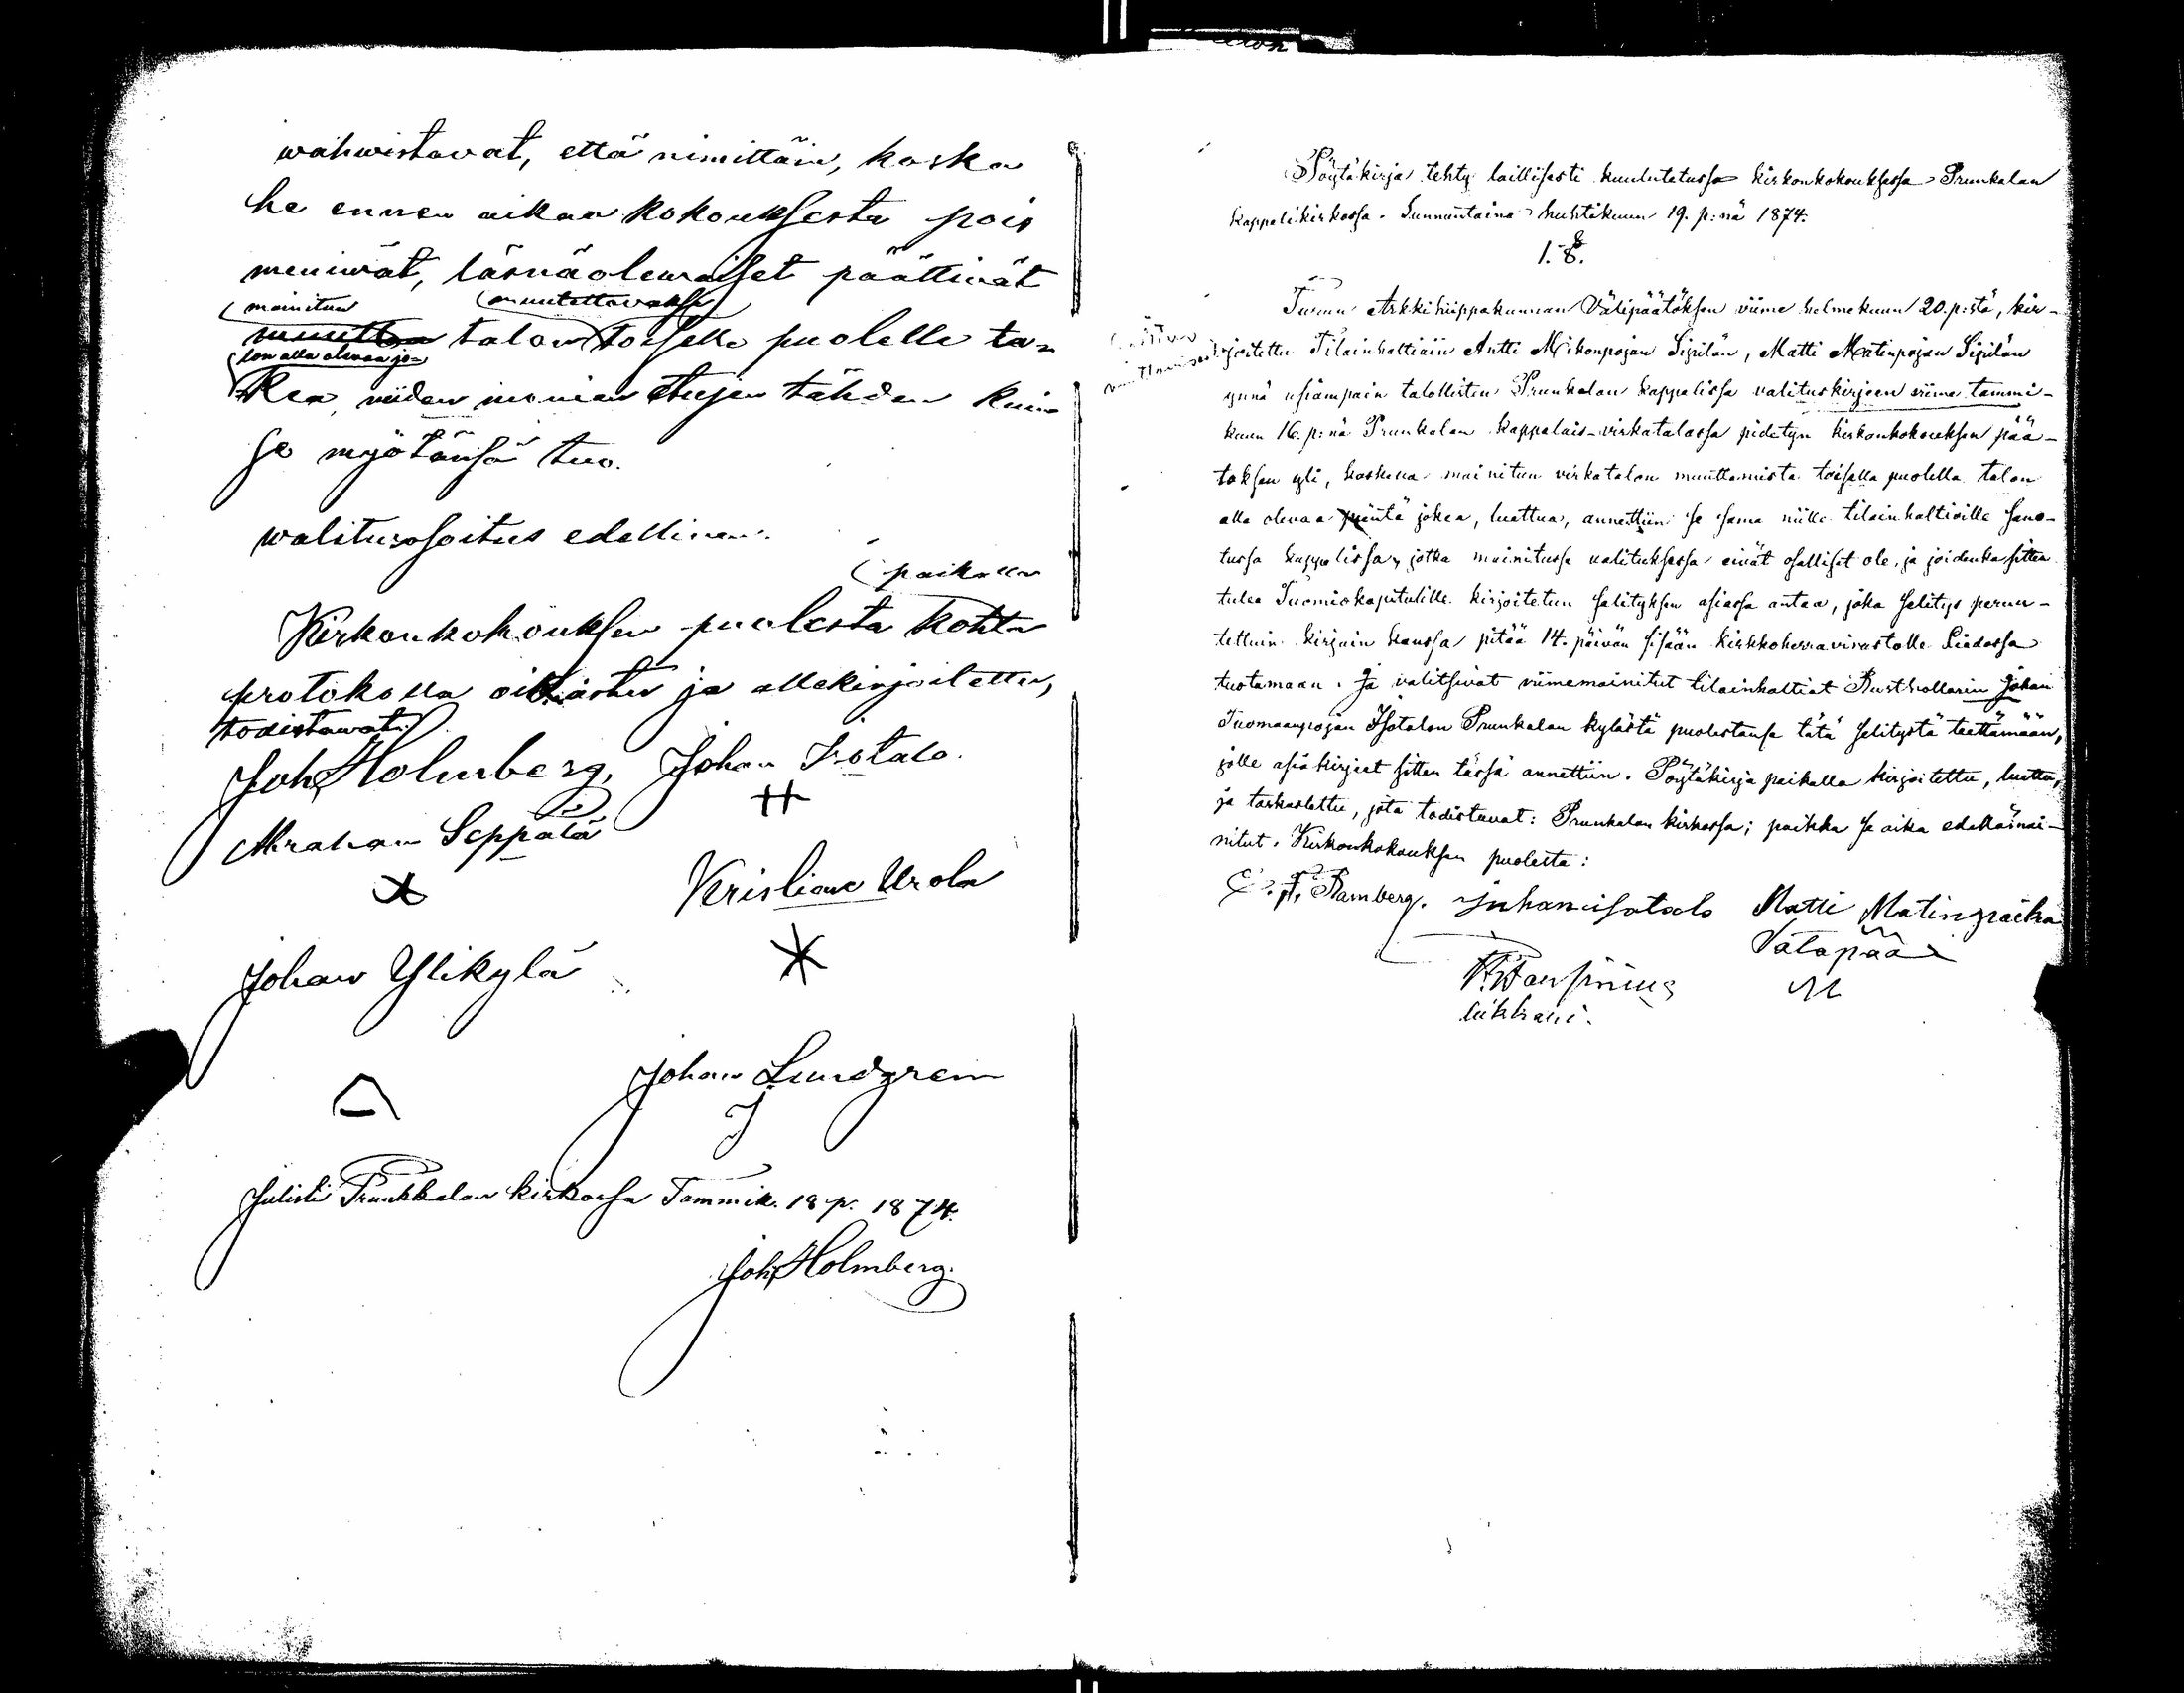 wahwistavat, että nimittäin, koska
he ennen aikaa kokouksesta pois
meniwät, läsnäolewaiset päättiwät
mainitun muutettavaksi
muuttaa talon toiselle puolelle ta-
lon alla olevaa jo-
kea, niiden monien etujen tähden kuin
se myötänsä tuo.
walitusosoitus edellinen.
paikalla
Kirkonkokouksen puolesta kohta
protokolla oikiastu ja allekirjoitettu,
todistawat:
Joh. Holmberg, Johan Isotalo.
Abraham Seppälä
Kristian Urola
Johan Ylikylä
Johan Lundgren
J
Julisti Prunkkalan kirkossa Tammik. 18 p. 1874.
Joh. Holmberg.
Pöytäkirja tehty laillisesti kuulutetussa kirkonkokouksessa Prunkalan
kappelikirkossa Sunnuntaina huhtikuun 19. p:nä 1874.
1. §.
Turun Arkkihiippakunnan Välipäätöksen viime helmekuun 20. p:stä, kir-
joitettu Tilainhaltiain Antti Mikonpojan Sipilän, Matti Matinpojan Sipilän
ynnä usiampain talollisten Prunkalan kappelissa valituskirjeen viime tammi-
kuun 16. p:nä Prunkalan kappalais-virkatalossa pidetyn kirkonkokouksen pää-
töksen yli, koskeva mainitun virkatalon muuttamista toisella puolella talon
alla olevaa jokea, luettua, annettiin se sama niille tilainhaltioille sano-
tussa kappelissa, jotka mainitussa valituksessa eivät osalliset ole, ja joidenka sitten
tulee Tuomiokapitulille kirjoitetun selityksen asiassa antaa, joka selitys perun-
tettuin kirjain kanssa pitää 14. päivän sisään kirkkoherravirastolle Liedossa
tuotamaan. Ja valitsivat viimemainitut tilainhaltiat Rusthollarin Johan
Tuomaanpojan Isotalon Prunkalan kylästä puolestansa tätä selitystä teettämään,
jolle asiakirjeet sitten tässä annettiin. Pöytäkirja paikalla kirjoitettu, luettu,
ja tarkastettu, jota todistavat: Prunkalan kirkossa; paikka ja aika edellämai-
nitut. Kirkonkokouksen puolesta:
E. F. Ramberg. Juhan isotalo Matti Matinpoika
Vätäpää
M